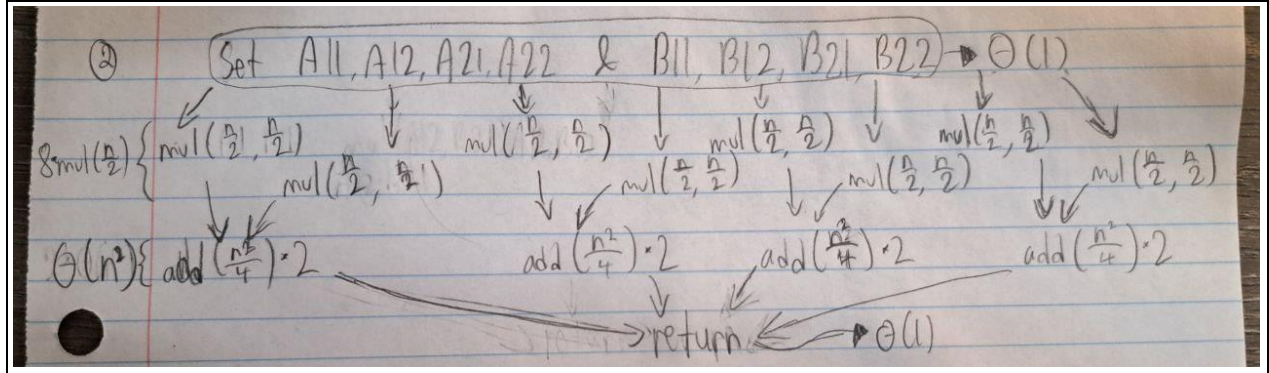 ② Set A11, A12, A21, A22 & B11, B12, B21, B22 → Θ(1)
8·mul(n/2) { mul(n/2, n/2) mul(n/2, n/2) mul(n/2, n/2) mul(n/2, n/2)
mul(n/2, n/2) mul(n/2, n/2) mul(n/2, n/2) mul(n/2, n/2)
Θ(n²) { add(n²/4)·2 add(n²/4)·2 add(n²/4)·2 add(n²/4)·2
return → Θ(1)